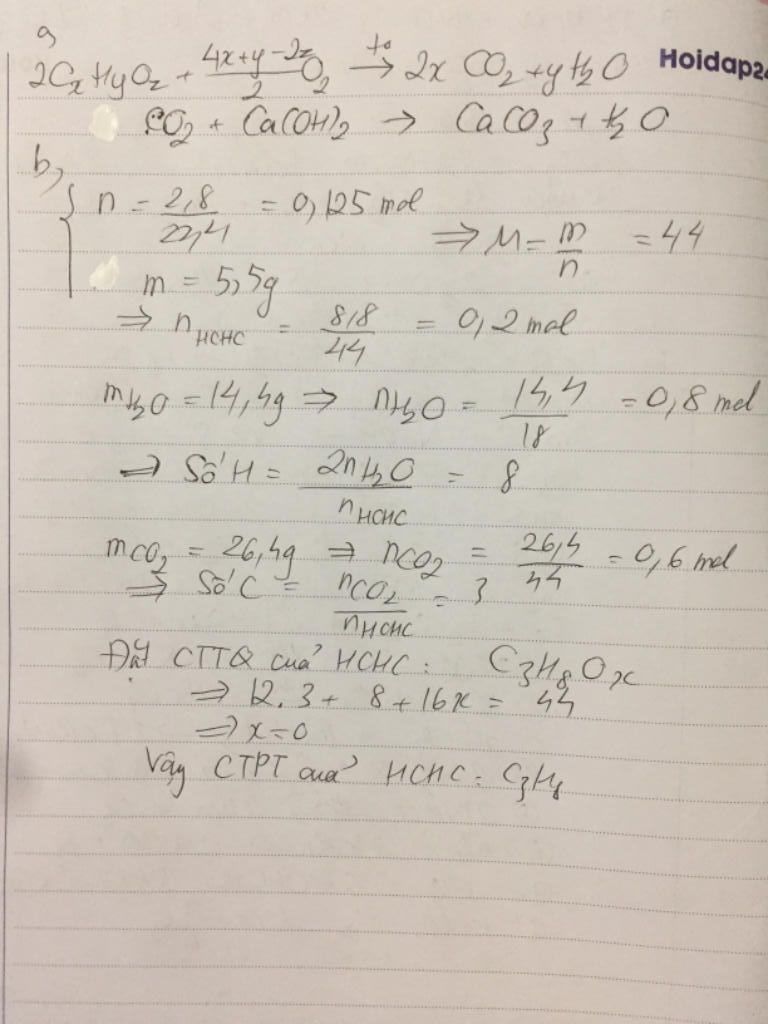 a,
2CxHyOz + (4x+y-2z)/2 O2 →(t°) 2x CO2 + y H2O
Hoidap24
CO2 + Ca(OH)2 → CaCO3 + H2O
b,
{ n = 2,8/22,4 = 0,125 mol
⇒ M = m/n = 44
m = 5,5g
⇒ nHCHC = 8,8/44 = 0,2 mol
mH2O = 14,4g ⇒ nH2O = 14,4/18 = 0,8 mol
⇒ Số H = 2nH2O/nHCHC = 8
mCO2 = 26,4g ⇒ nCO2 = 26,4/44 = 0,6 mol
⇒ Số C = nCO2/nHCHC = 3
Đặt CTTQ của HCHC: C3H8Ox
⇒ 12.3 + 8 + 16x = 44
⇒ x=0
Vậy CTPT của HCHC: C3H8